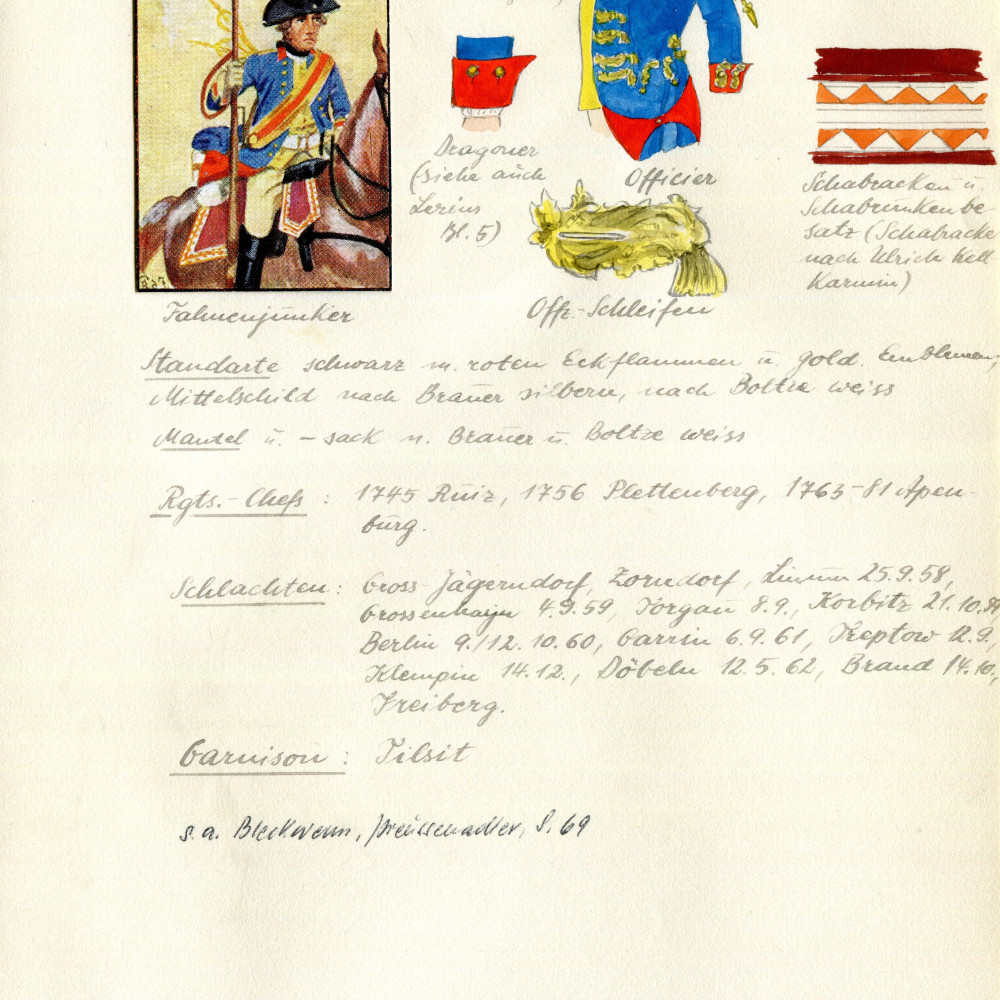 Dragoner
(siehe auch
Lezius
Bl. 5)
Officier
Schabracken u.
Schabrunkenbe-
satz (Schabracke
nach Ulrich hell-
karmin)
Fahnenjunker
Offz.-Schleifen
Standarte schwarz m. roten Eckflammen u. gold. Emblemen,
Mittelschild nach Brauer silbern, nach Boltze weiss
Mantel u. - sack n. Brauer u. Boltze weiss
Rgts.-Chefs : 1745 Ruiz, 1756 Plettenberg, 1763-81 Apen-
burg.
Schlachten : Gross-Jägerndorf, Zorndorf, 25.9.58,
Grossenhayn 4.9.59, Torgau 8.9., Korbitz 21.10.59
Berlin 9./12.10.60, Garrin 6.9.61, Treptow 12.9.,
Klempin 14.12., Döbeln 12.5.62, Brand 14.10.,
Freiberg.
Garnison : Tilsit
s. a. Bleckwenn, preussenadler, S. 69